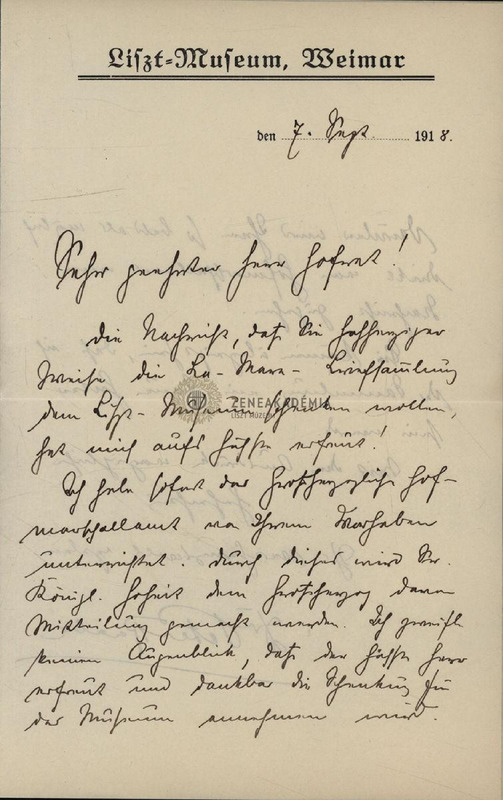 Liszt-Museum, Weimar
den 7. Sept. 1918.
Sehr geehrter Herr Hofrat!
Die Nachricht, daß Sie hochherziger
Weise die La-Mara-Briefsammlung
dem Liszt-Museum schenken wollen,
hat mich aufs höchste erfreut!
Ich habe sofort das Großherzogliche Hof-
marschallamt von Ihrem Vorhaben
unterrichtet. Durch dieses wird Sr.
Königl. Hoheit dem Großherzog davon
Mitteilung gemacht werden. Ich zweifle
keinen Augenblick, daß der hohe Herr
erfreut und dankbar die Schenkung für
das Museum annehmen wird.
ZENEAKADÉMIA
LISZT MÚZEUM